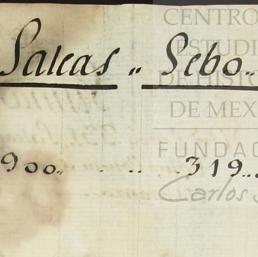 Saleas „ Sebo „
900 „ „ 319 „
CENTRO
ESTUDI
DE HISTO
DE MEX
FUNDAC
Carlos S